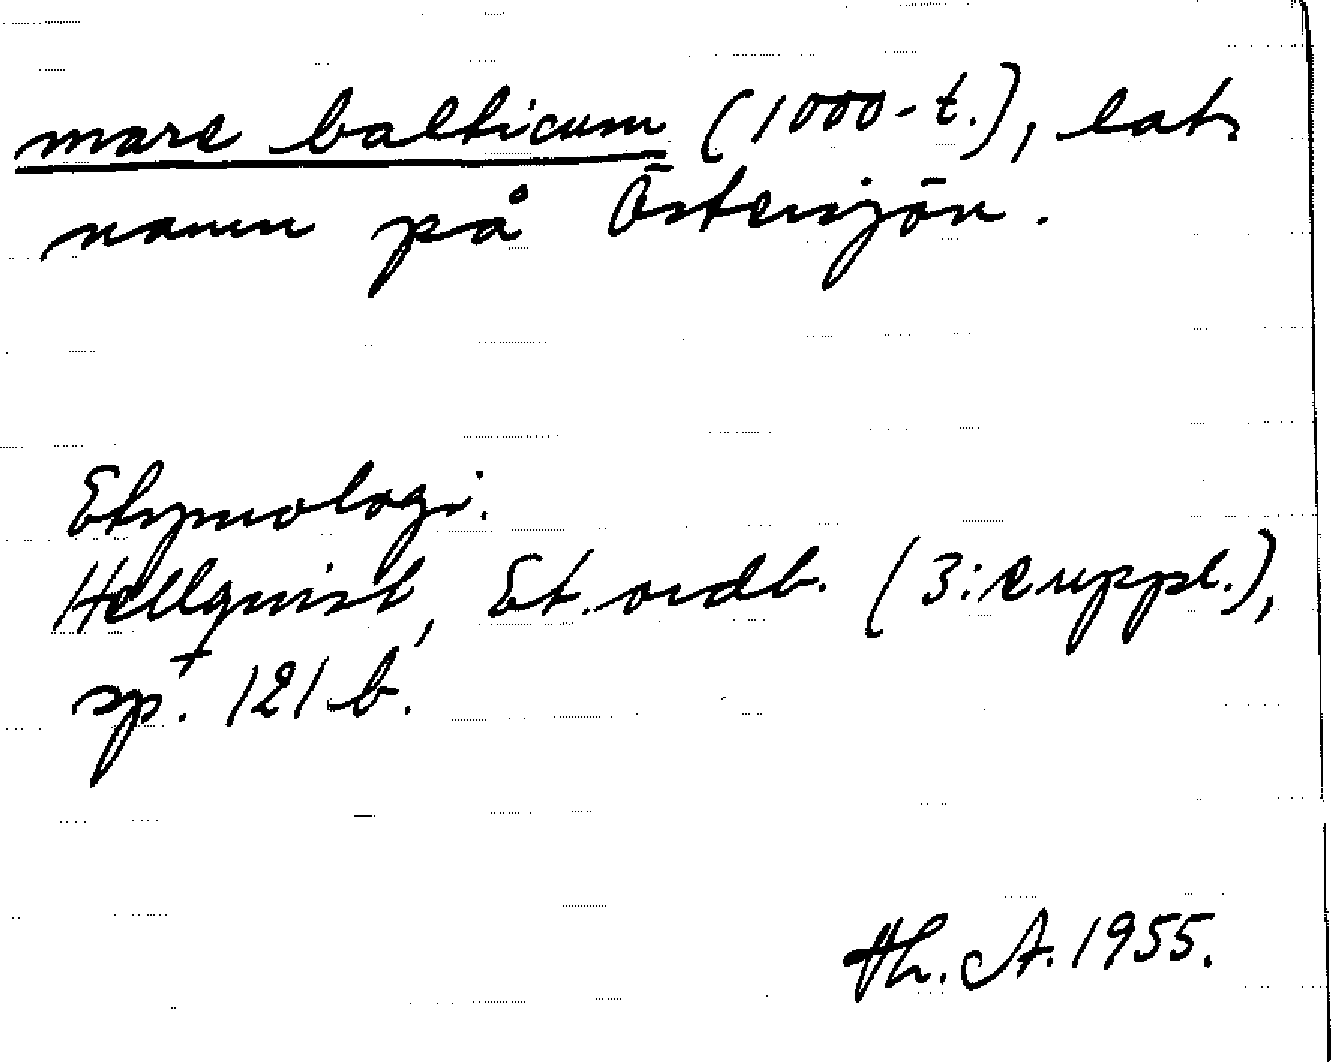 mare balticum (1000-t.), lat.
namn på Östersjön.
Etymologi.
Hellquist, Et. ordb. (3:e uppl.),
sp. 121 b.
Th. A. 1955.